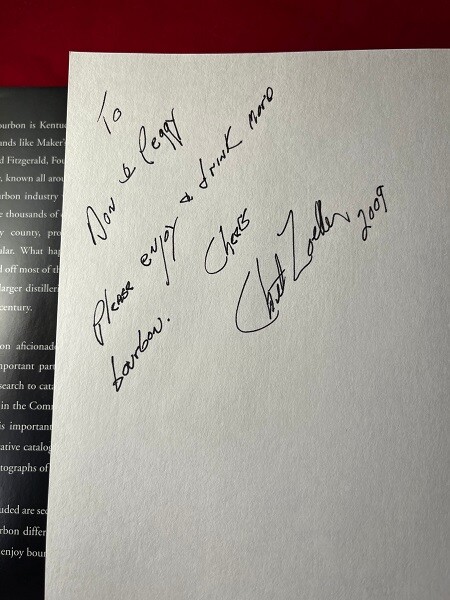 ourbon is Kentuc
ands like Maker'
d Fitzgerald, Fou
, known all arou
rbon industry
e thousands of
y county, pro
lar. What hap
d off most of th
larger distilleri
century.
on aficionado
mportant par
search to cata
in the Com
is importan
ative catalog
tographs of
uded are sec
rbon differ
enjoy bour
To
Don & Peggy
Please enjoy & drink more
bourbon.
Cheers
Chet Zoeller 2009